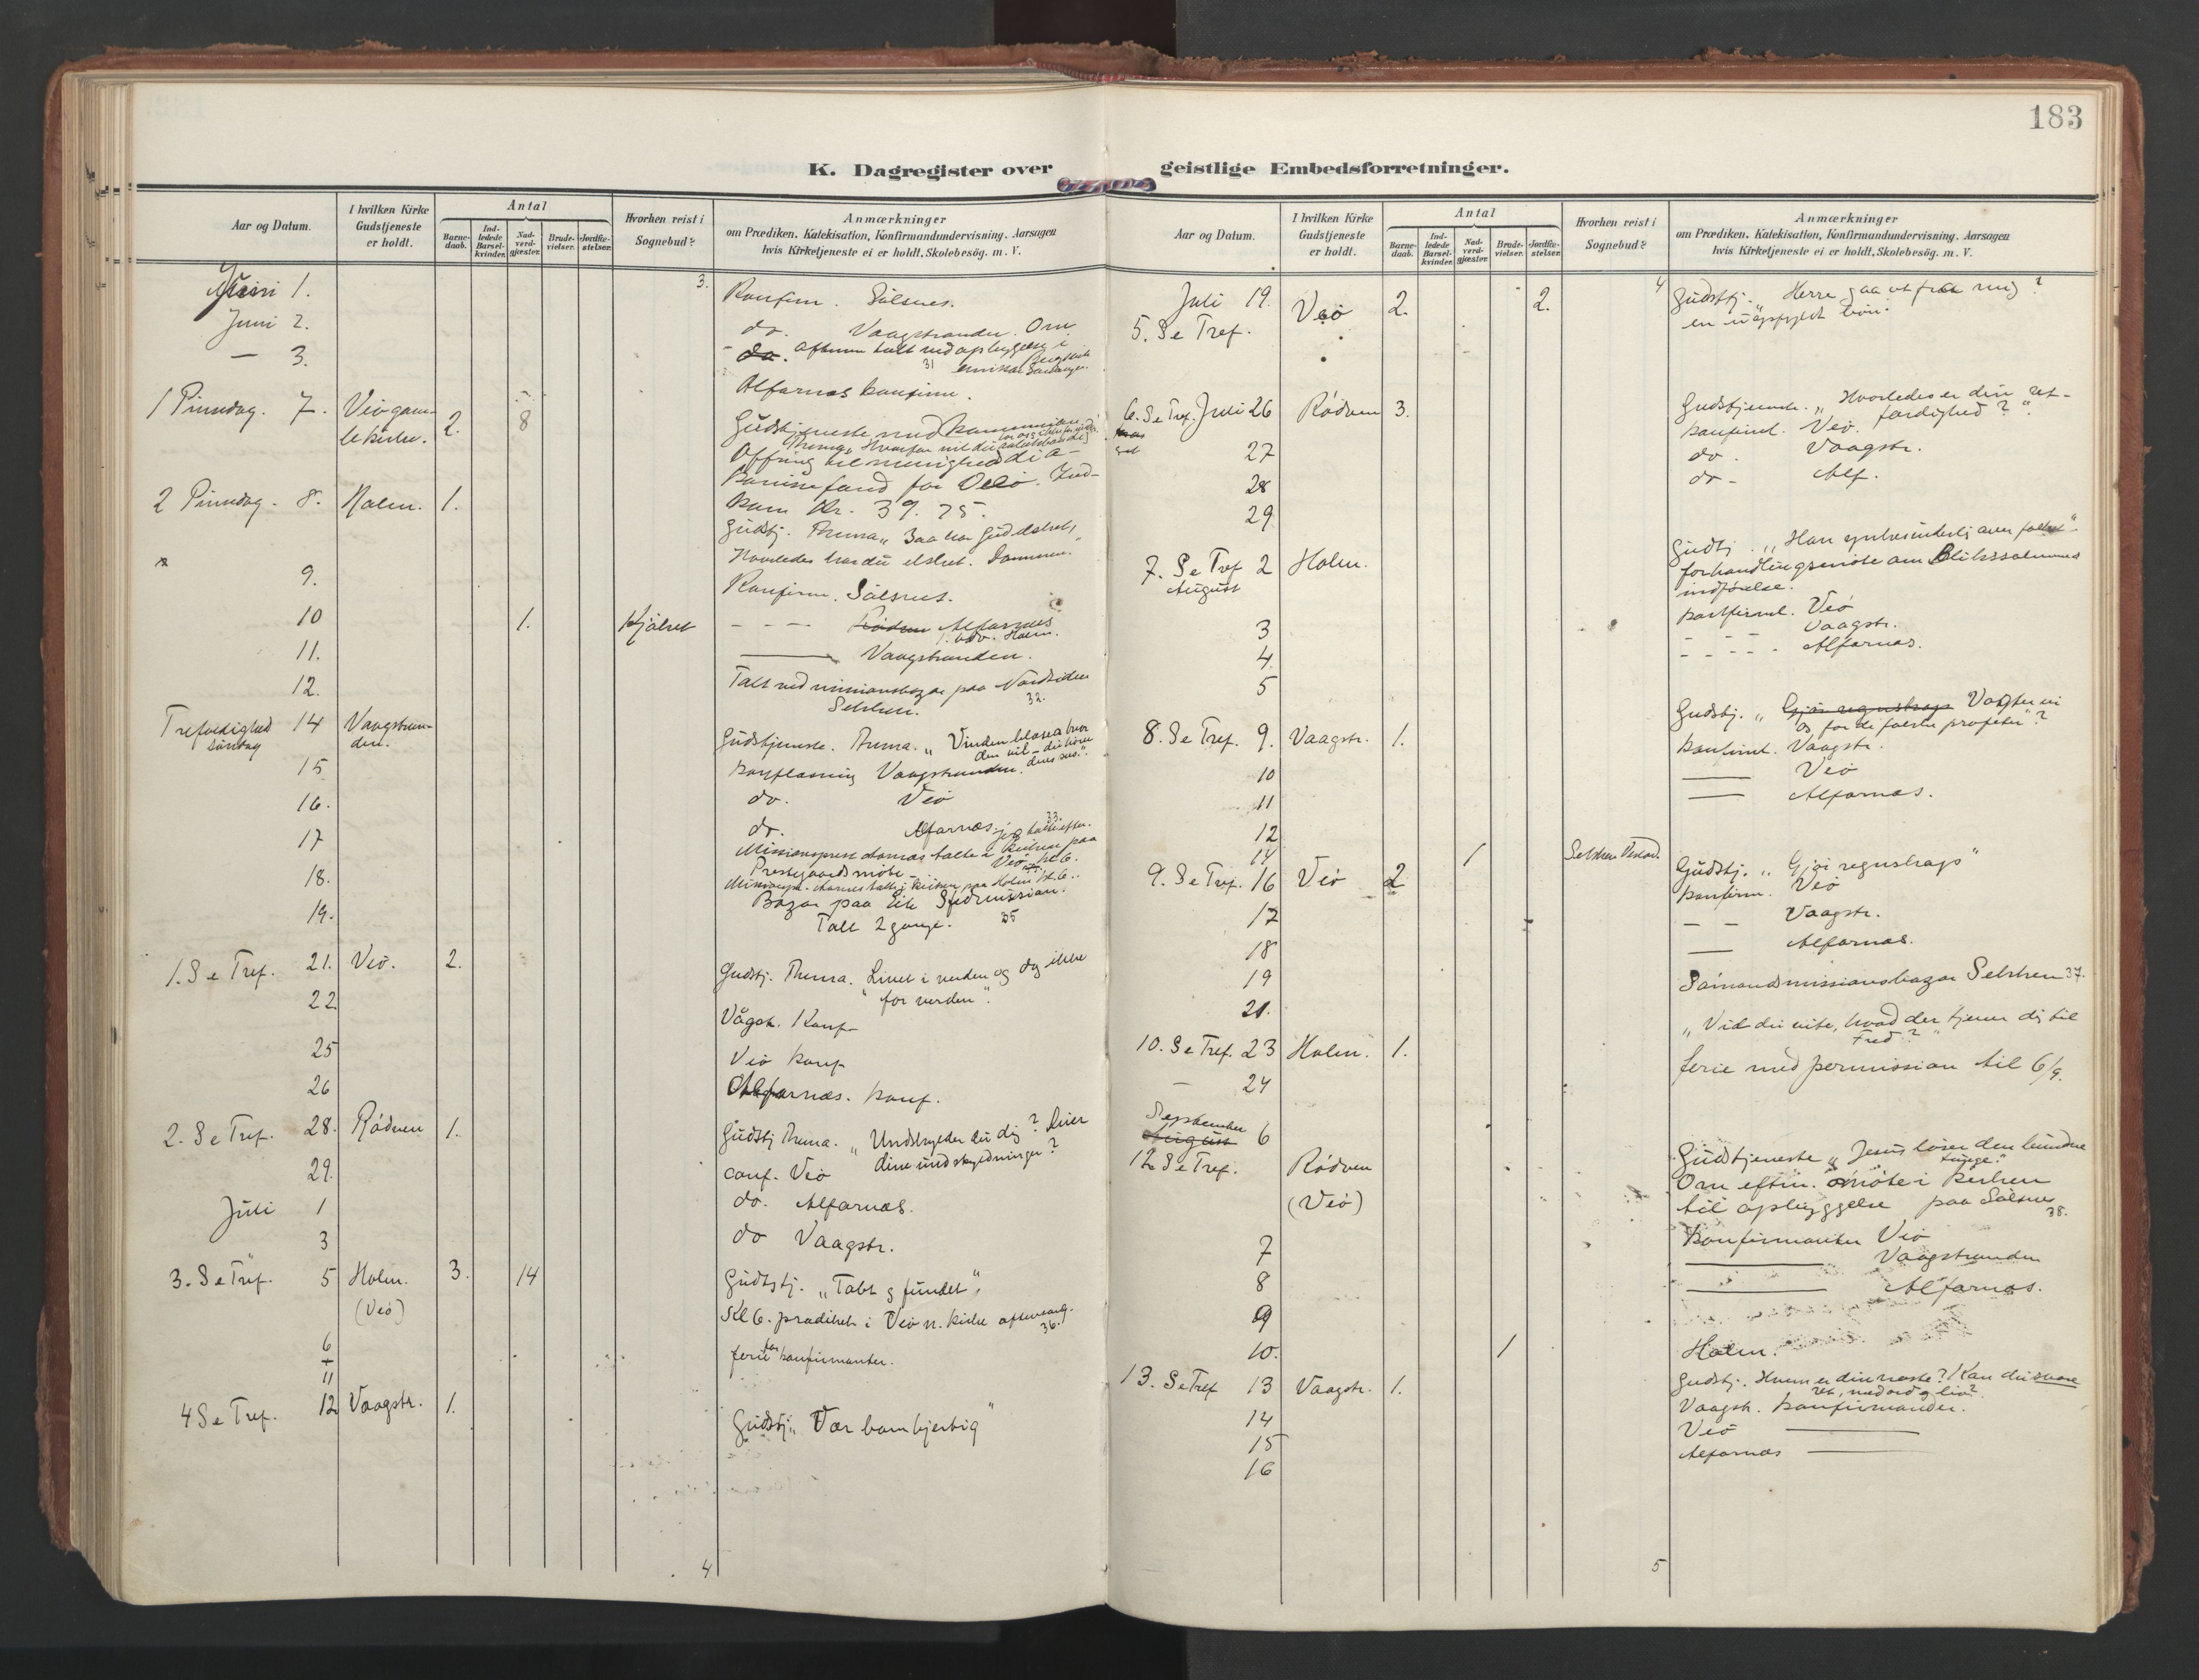 183
K. Dagregister over geistlige Embedsforretninger.
Aar og Datum.
I hvilken Kirke Gudstjeneste er holdt.
Antal
Barne-daab.
Ind-ledede Barsel-kvinder.
Nad-verd-gjæster.
Brude-vielser.
Jordfæ-stelser.
Hvorhen reist i Sognebud?
Anmærkninger
om Prædiken. Katekisation, Konfirmandundervisning. Aarsagen
hvis Kirketjeneste ei er holdt. Skolebesög. m. V.
3.
Juni 1. Konfirm. Sølsnes.
Juni 2. do. Vaagstranden. Om
— 3. aftenen talt ved opbyggelse i
31
Alfarnæs konfirm.
1 Pinsedag. 7. Veø gam-
le kirke. 2. 8 Gudstjeneste med
Thema „ Hvorfor vil du
Offring til menighed di a-
konissefond for Veø. Ind-
kom Kr. 39.75.
2 Pinsedag. 8. Holm. 1. Gudstj. Thema „ Saa har Gud elsket,
Hvorledes har du elsket. Dommen."
9. Konfirm. Sølsnes.
10 1. Kjølset - - - Alfarnæs
Holm.
11. —— Vaagstranden.
12. Talt ved missionsbazar paa Nordsiden
Sekken. 32.
Trefoldighed 14 Vaagstran-
søndag den. Gudstjeneste. Thema. „ Vinden blæser hvor
den vil - du hører
dens sus".
15 konflæsning Vaagstranden.
16. do. Veø
17 do. Alfarnæs. 33.
Missionsprest talte i kirken paa
Veø kl. 6.
18. Prestegaardsmøte -
i kirken paa Holm kl. 6.
19. Bazar paa Eik Sjømission.
Talt 2 gange. 35
1. S e Tref. 21. Veø. 2. Gudstj. Thema. Livet i verden og dog ikke
" for verden".
22 Vågstr. Konf.
25 Veø konf.
26 Alfarnæs. konf.
2. S e Tref. 28. Rødven 1. Gudstj Thema. „ Undskylder du dig? Duer
dine undskyldninger?
29. conf. Veø
Juli 1 do. Alfarnæs.
3 do Vaagstr.
3. S e Tref. 5 Holm. 3. 14 Gudstj. „ Tabt og fundet",
(Veø) Kl 6. prædiket i Veø n. kirke aftensang.
36.
6
+
11 ferie for konfirmanter.
4 S e Tref. 12 Vaagstr. 1. Gudstj „ Vær barmhjertig"
4
Aar og Datum.
I hvilken Kirke Gudstjeneste er holdt.
Antal
Barne-daab.
Ind-ledede Barsel-kvinder.
Nad-verd-gjæster.
Brude-vielser.
Jordfæ-stelser.
Hvorhen reist i Sognebud?
Anmærkninger
om Prædiken. Katekisation, Konfirmandundervisning. Aarsagen
hvis Kirketjeneste ei er holdt, Skolebesög. m. V.
4
Juli 19. Veø 2. 2. Gudstj. „ Herre gaa ut fra mig?
5. S e Tref. en uopfyldt bøn.
6. S e Tref. Juli 26 Rødven 3. Gudstjeneste „ Hvorledes er din ret-
færdighed?"
27 konfirmt. Veø.
28 do. Vaagstr.
29 do - Alf.
7. S e Tref 2 Holm. Gudtj. „ Han ynkes inderlig over folket"
August forhandlingsmøte om Blixsalmenes
indførelse.
3 konfirmt. Veø
4 Vaagstr.
5 - - - - Alfarnæs.
8. S e Tref. 9. Vaagstr. 1. Gudstj. „ Gjør regnskap Vogter vi
os for de falske profeter"?
10 konfirmt. Vaagstr.
11 —— Veø
12 —— Alfarnæs.
14 1 Sekken
9. S e Tref. 16 Veø 2 Gudstj. „ Gjør regnskap"
17 konfirm. Veø
18 - - Vaagstr.
19 —— Alfarnæs.
21. Sømandsmissionsbazar Sekken 37.
10. S e Tref. 23 Holm. 1. „ Vid du vite, hvad der tjener dig til
Fred?"
— 24 ferie med permission til 6/9.
September
August 6
12 S e Tref. Rødven
(Veø) Gudstjeneste „ Jesus løser den bundne
tunge."
Om efterm. møte i kirken
til opbyggelse paa Sølsnes
38.
7 Konfirmanter Veø
8 —— Vaagstranden
9 —— Alfarnæs.
10. 1 Holm.
13. S e Tref 13 Vaagstr. 1. Gudstj. Hvem er din næste? Kan du svare
ret, med ord og liv?
14 Vaagstr. konfirmander.
15 Veø ——
16 Alfarnæs ——
5